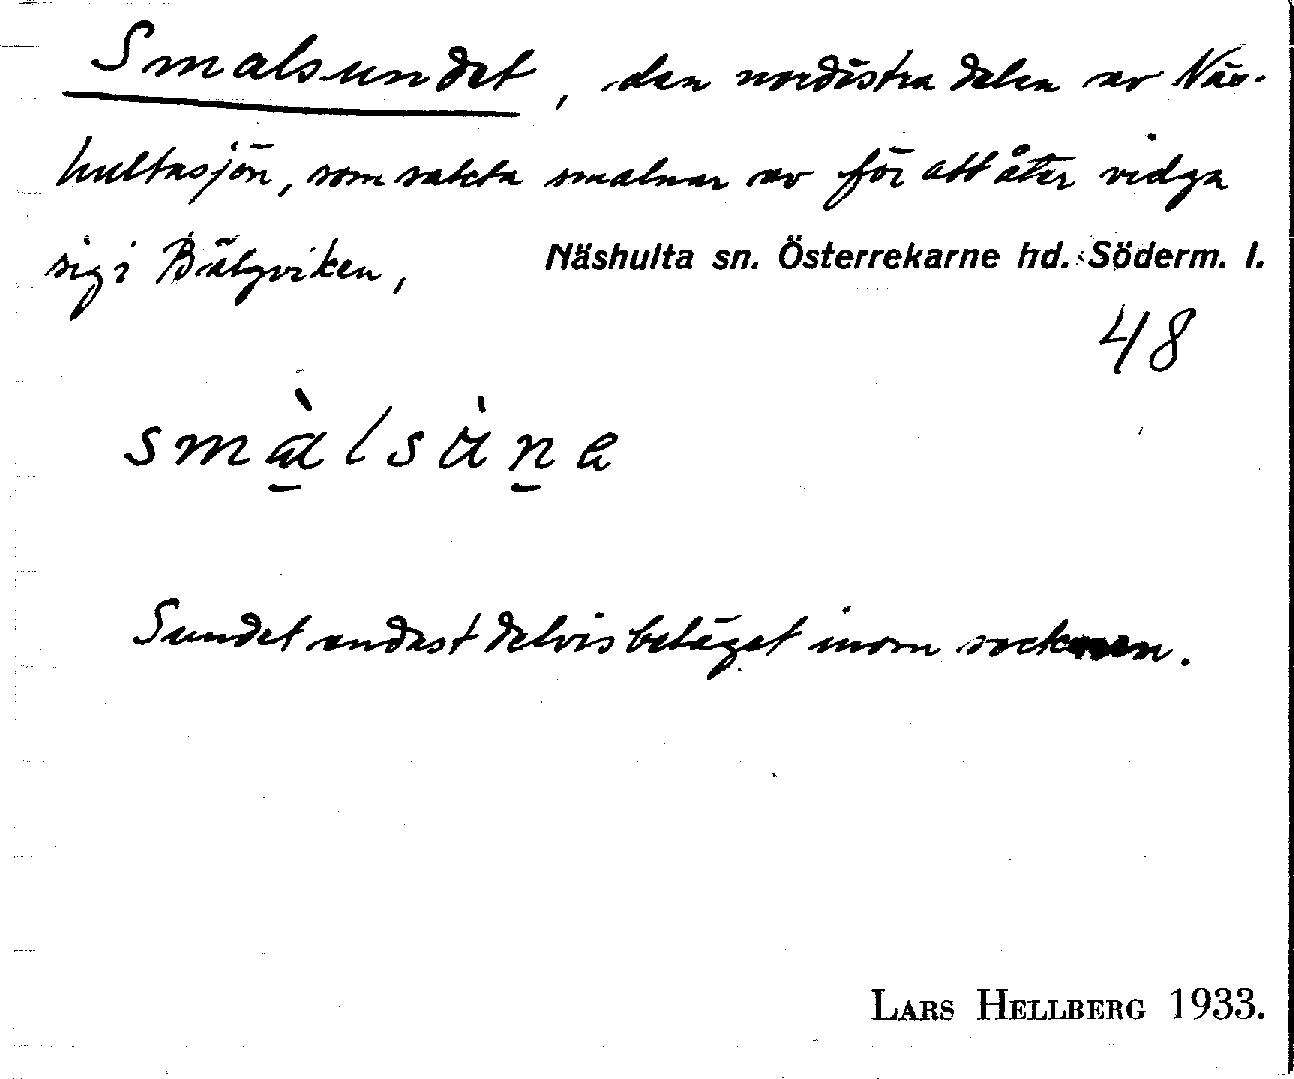 Smalsundet, den nordöstra delen av Näs-
hultasjön, som sakta smalnar av för att åter vidga
sig i Bälgviken, Näshulta sn. Österrekarne hd. Söderm. l.
48
smàlsùnə
Sundet endast delvis beläget inom socknen.
LARS HELLBERG 1933.